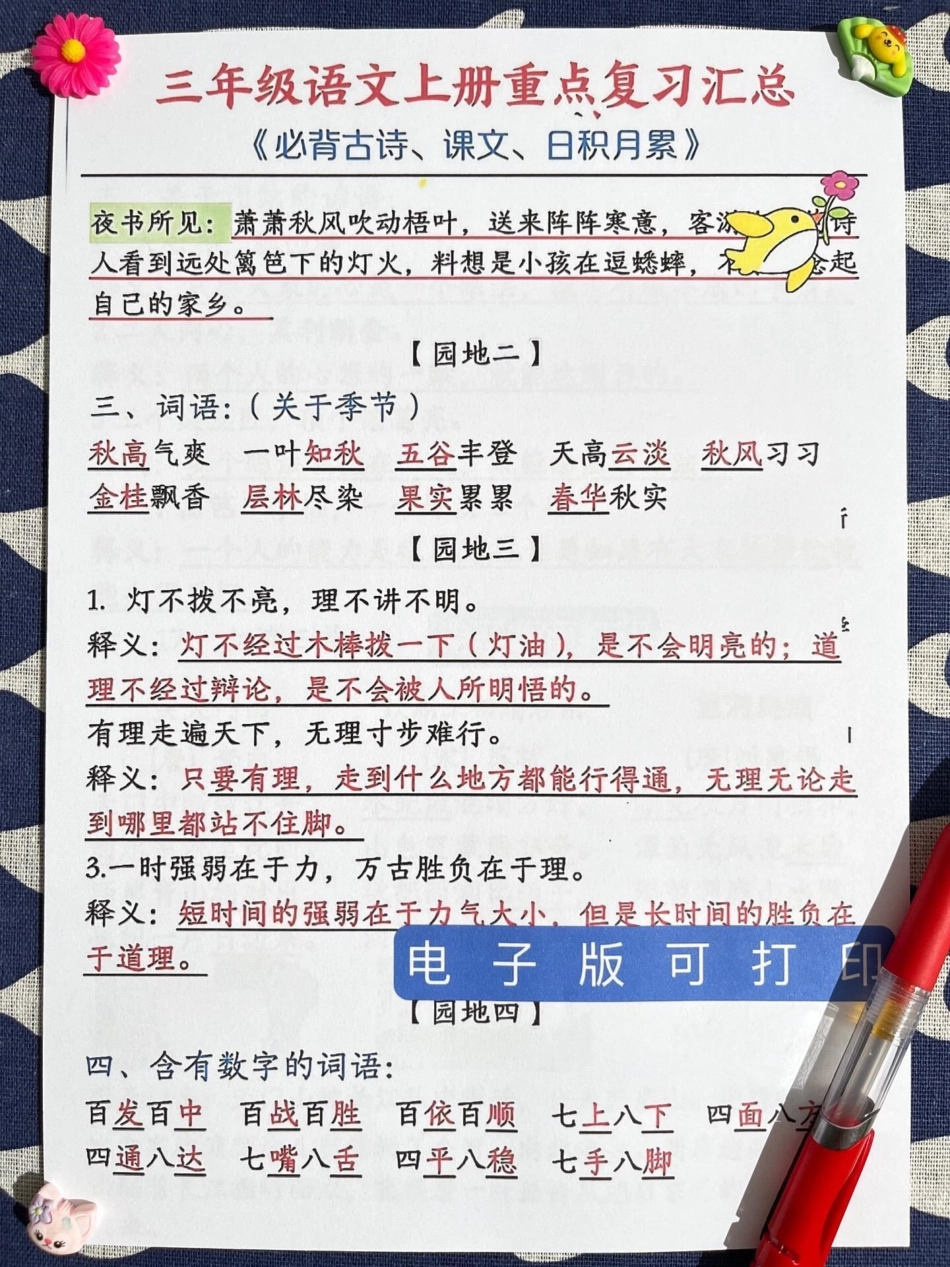 三年级语文上册重点复习汇总
《必背古诗、课文、日积月累》
夜书所见：萧萧秋风吹动梧叶，送来阵阵寒意，客游 诗
人看到远处篱笆下的灯火，料想是小孩在逗蟋蟀，不 念起
自己的家乡。
【园地二】
三、词语：（关于季节）
秋高气爽 一叶知秋 五谷丰登 天高云淡 秋风习习
金桂飘香 层林尽染 果实累累 春华秋实
【园地三】
1. 灯不拨不亮，理不讲不明。
释义：灯不经过木棒拨一下（灯油），是不会明亮的；道
理不经过辩论，是不会被人所明悟的。
有理走遍天下，无理寸步难行。
释义：只要有理，走到什么地方都能行得通，无理无论走
到哪里都站不住脚。
3.一时强弱在于力，万古胜负在于理。
释义：短时间的强弱在于力气大小，但是长时间的胜负在
于道理。
电子版可打印
【园地四】
四、含有数字的词语：
百发百中 百战百胜 百依百顺 七上八下 四面八方
四通八达 七嘴八舌 四平八稳 七手八脚